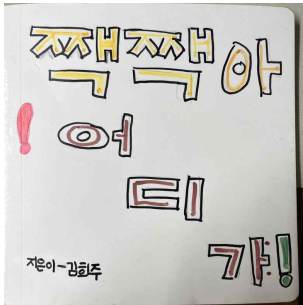 짹짹아
어
디
가!!
!
지은이-김희주